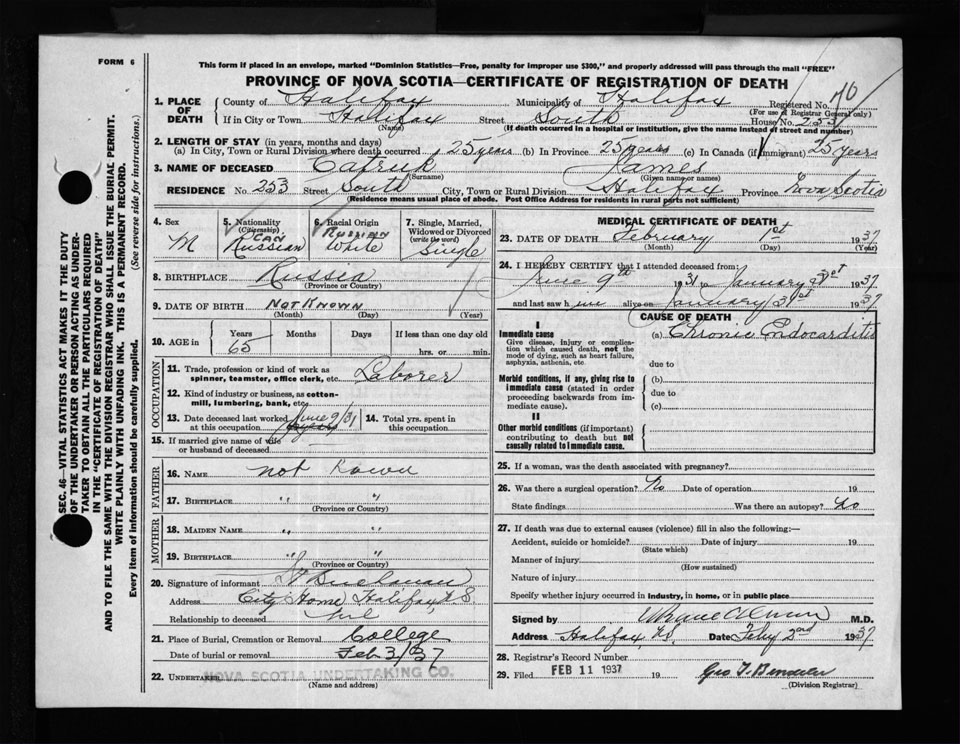 FORM 6
This form if placed in an envelope, marked "Dominion Statistics—Free, penalty for improper use $300," and properly addressed will pass through the mail "FREE"
PROVINCE OF NOVA SCOTIA—CERTIFICATE OF REGISTRATION OF DEATH
SEC. 46—VITAL STATISTICS ACT MAKES IT THE DUTY
OF THE UNDERTAKER OR PERSON ACTING AS UNDER-
TAKER TO OBTAIN ALL THE PARTICULARS REQUIRED
IN THE "CERTIFICATE OF REGISTRATION OF DEATH"
AND TO FILE THE SAME WITH THE DIVISION REGISTRAR WHO SHALL ISSUE THE BURIAL PERMIT.
WRITE PLAINLY WITH UNFADING INK. THIS IS A PERMANENT RECORD.
Every item of information should be carefully supplied. (See reverse side for instructions.)
1. PLACE OF DEATH County of Halifax Municipality of Halifax Registered No. 76
(For use of Registrar General only)
If in City or Town Halifax Street South House No. 253
(Name) (If death occurred in a hospital or institution, give the name instead of street and number)
2. LENGTH OF STAY (in years, months and days)
(a) In City, Town or Rural Division where death occurred 25 years (b) In Province 25 years (c) In Canada (if immigrant) 25 years
3. NAME OF DECEASED James
(Surname) (Given name or names)
RESIDENCE No. 253 Street South City, Town or Rural Division Halifax Province Nova Scotia
(Residence means usual place of abode. Post Office Address for residents in rural parts not sufficient)
4. Sex M
5. Nationality (Citizenship) Can Russian
6. Racial Origin Russian White
7. Single, Married, Widowed or Divorced (write the word) Single
8. BIRTHPLACE Russia
(Province or Country)
9. DATE OF BIRTH Not Known
(Month) (Day) (Year)
10. AGE in Years 65 Months Days If less than one day old hrs. or min.
OCCUPATION
11. Trade, profession or kind of work as spinner, teamster, office clerk, etc. Laborer
12. Kind of industry or business, as cotton-mill, lumbering, bank, etc.
13. Date deceased last worked at this occupation June 9/31
14. Total yrs. spent in this occupation
15. If married give name of wife or husband of deceased
FATHER
16. NAME not known
17. BIRTHPLACE " "
(Province or Country)
MOTHER
18. MAIDEN NAME " "
19. BIRTHPLACE " "
(Province or Country)
20. Signature of informant Buchanan
Address City Home Halifax N.S
Relationship to deceased nil
21. Place of Burial, Cremation or Removal College
Date of burial or removal Feb 3/37
22. UNDERTAKER NOVA SCOTIA UNDERTAKING CO.
(Name and address)
MEDICAL CERTIFICATE OF DEATH
23. DATE OF DEATH February 1st 1937
(Month) (Day)
24. I HEREBY CERTIFY that I attended deceased from:
June 9th 1931 to January 31st 1937
and last saw him alive on January 31st 1937
CAUSE OF DEATH
I
Immediate cause
Give disease, injury or complication which caused death, not the mode of dying, such as heart failure, asphyxia, asthenia, etc.
(a) Chronic Endocarditis
due to
Morbid conditions, if any, giving rise to immediate cause (stated in order proceeding backwards from immediate cause).
(b)
due to
(c)
II
Other morbid conditions (if important) contributing to death but not causally related to immediate cause.
25. If a woman, was the death associated with pregnancy?
26. Was there a surgical operation? No Date of operation 19
State findings Was there an autopsy? No
27. If death was due to external causes (violence) fill in also the following:—
Accident, suicide or homicide? Date of injury 19
(State which)
Manner of injury
(How sustained)
Nature of injury
Specify whether injury occurred in industry, in home, or in public place
Signed by M.D.
Address Halifax NS Date Feby 2nd 1937
28. Registrar's Record Number
29. Filed FEB 11 1937 19 Geo
(Division Registrar)